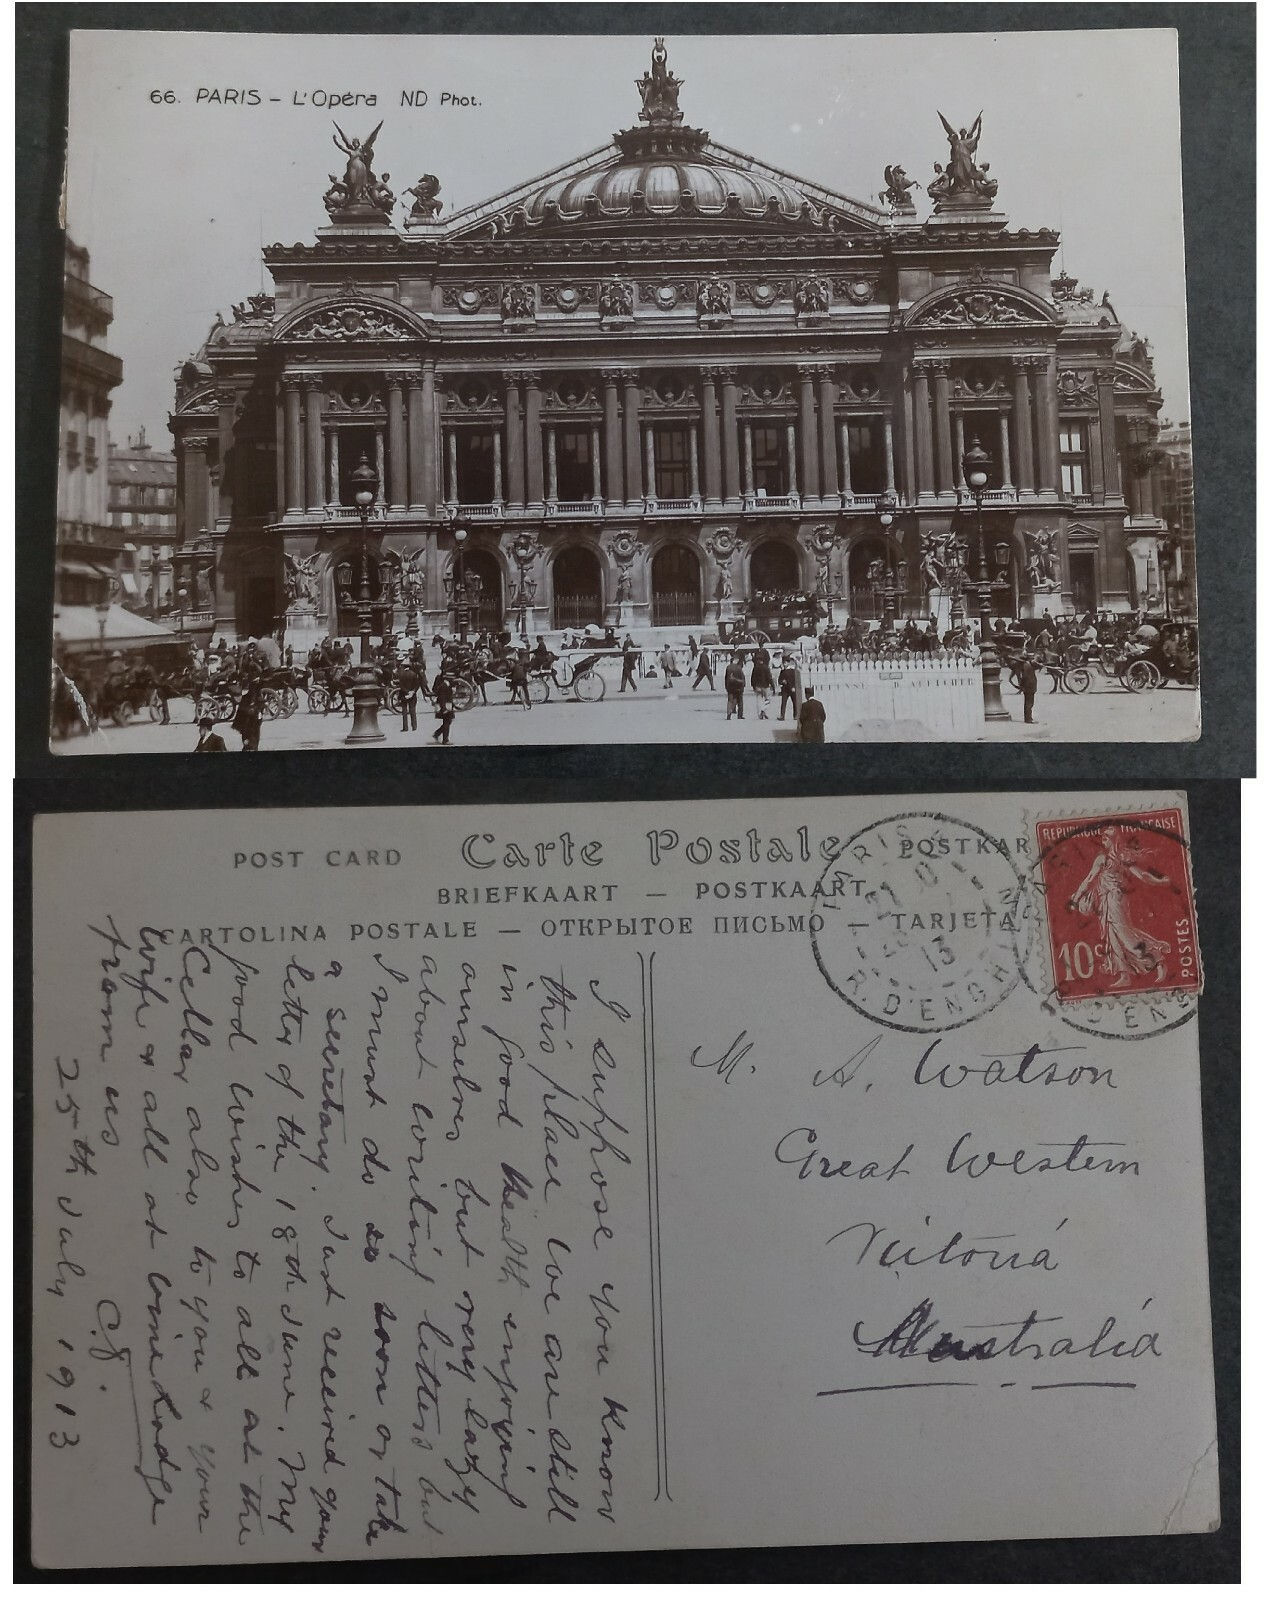 66. PARIS – L'Opéra ND Phot.
DEFENSE D'AFFICHER
POST CARD Carte Postale POSTKAR
BRIEFKAART — POSTKAART
CARTOLINA POSTALE — ОТКРЫТОЕ ПИСЬМО — TARJETA
PARIS
13
R. D'ENGHIEN
REPUBLIQUE FRANÇAISE
10c
POSTES
I suppose you know
this place we are still
in good health enjoying
ourselves but very lazy
about writing letters but
I must do so soon or take
a secretary. Just received your
letter of the 18th June. My
good wishes to all at the
Cellar also to you & your
wife & all at Vine Lodge
from us
25th July 1913
M. A. Watson
Great Western
Victoria
Australia